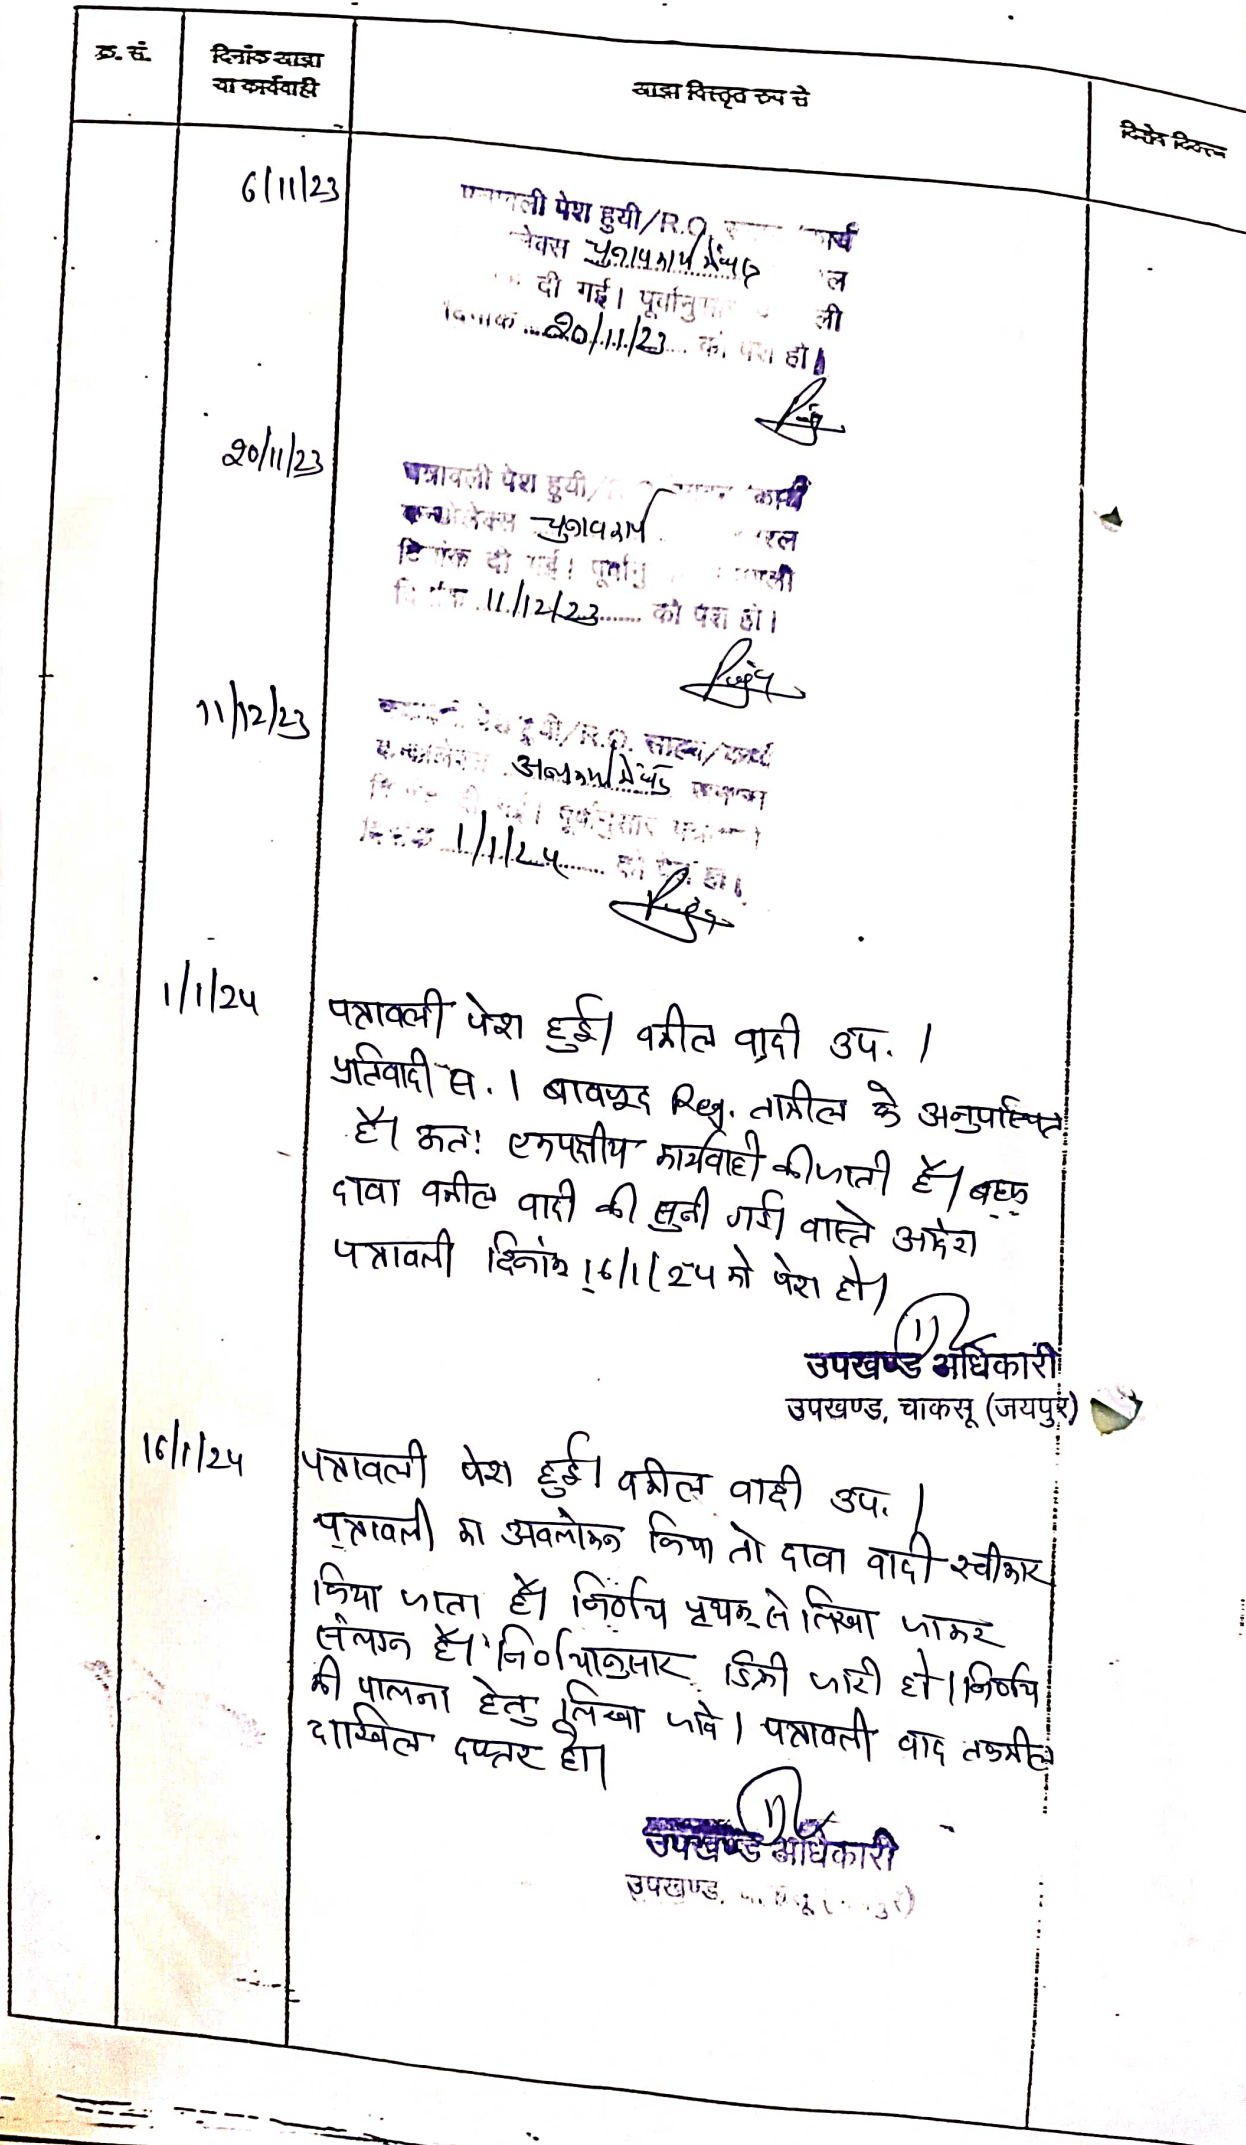 क्र. सं.
दिनांक आज्ञा
या कार्यवाही
आज्ञा विस्तृत रूप से
विशेष विवरण
6/11/23
पत्रावली पेश हुयी/R.O. कार्य
चुनाव कार्य में व्यस्त
दी गई।
दिनांक 20/11/23 को पेश हो।
20/11/23
पत्रावली पेश हुयी/ कार्य
चुनाव कार्य
दिनांक दी गई।
दिनांक 11/12/23 को पेश हो।
11/12/23
पेश हुयी/R.O. साहब/कार्य
अन्य कार्य में व्यस्त
दी गई। पूर्वानुसार
दिनांक 1/1/24 को पेश हो।
1/1/24
पत्रावली पेश हुई। वकील वादी उप.।
प्रतिवादी स. 1 बावजूद Reg. तामील के अनुपस्थित
है। अतः एकपक्षीय कार्यवाही की जाती है। बहस
दावा वकील वादी की सुनी गई। वास्ते आदेश
पत्रावली दिनांक 16/1/24 को पेश हो।
उपखण्ड अधिकारी
उपखण्ड, चाकसू (जयपुर)
16/1/24
पत्रावली पेश हुई। वकील वादी उप.।
पत्रावली का अवलोकन किया तो दावा वादी स्वीकार
किया जाता है। निर्णय पृथक से लिखा जाकर
संलग्न है। निर्णयानुसार डिक्री जारी हो। निर्णय
की पालना हेतु लिखा जावे। पत्रावली बाद तकमील
दाखिल दफ्तर हो।
उपखण्ड अधिकारी
उपखण्ड,